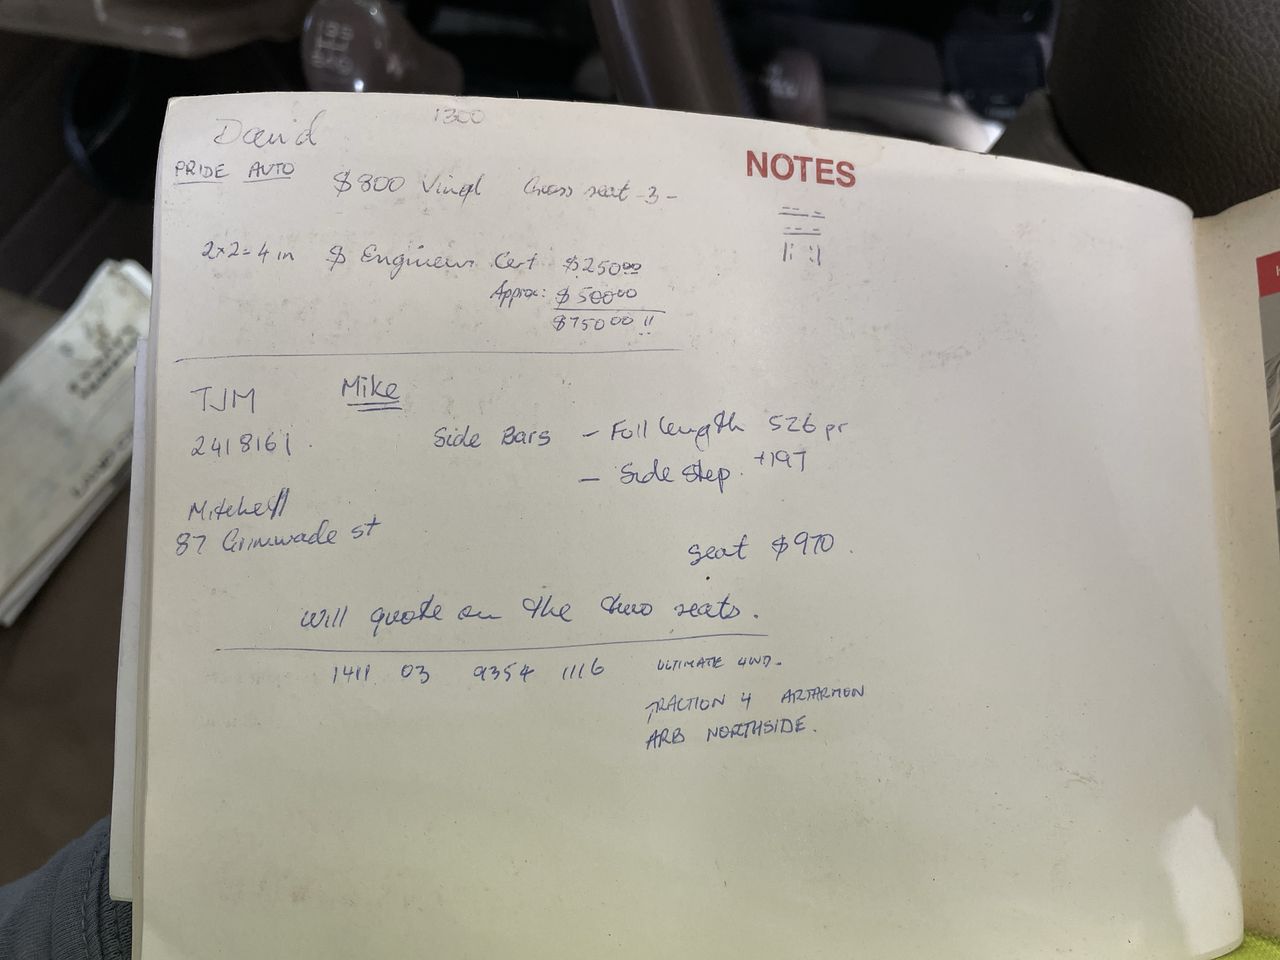 David 1300
NOTES
PRIDE AUTO $800 Vinyl Cross seat -3-
2x2=4 in $ Engineers Cert $250.00
Approx: $500.00
$750.00 !!
TJM Mike
2418161. Side Bars - Full length 526 pr
- Side Step. +197
Mitchell
87 Grimwade st
seat $970.
Will quote on the two seats.
1411 03 9354 1116 ULTIMATE 4WD.
TRACTION 4 ARTARMON
ARB NORTHSIDE.